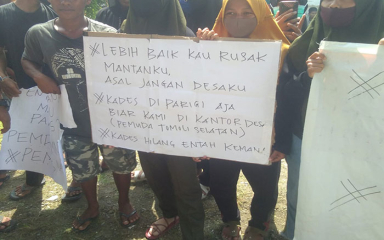 #LEBIH BAIK KAU RUSAK
MANTANKU,
ASAL JANGAN DESAKU
#KADES DI PARIGI AJA
BIAR KAMI DI KANTOR DES
(PEMUDA TUMILI SELATAN)
#KADES HILANG ENTAH KEMAN
PA
PEM
#PEN